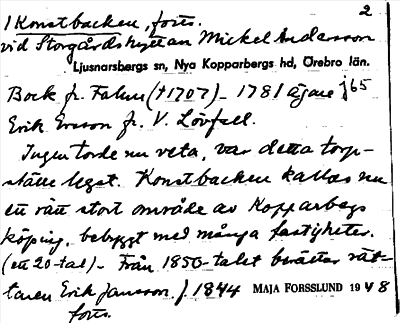 1 Konstbacken, forts. 2
vid Storgårdshyttan Mickel Andersson
Ljusnarsbergs sn, Nya Kopparbergs hd, Örebro län.
Bock fr. Falun (†1707)_ 1781 ägare j65
Erik Ersson fr. V. Lövfall.
Ingen torde nu veta, var detta torp-
ställe legat. Konstbacken kallas nu
ett rätt stort område av Kopparbergs
köping, bebyggt med många fastigheter.
(ett 20-tal)_ Från 1850-talet berättar rät-
taren Erik Jansson f. 1844 MAJA FORSSLUND 1948
forts.